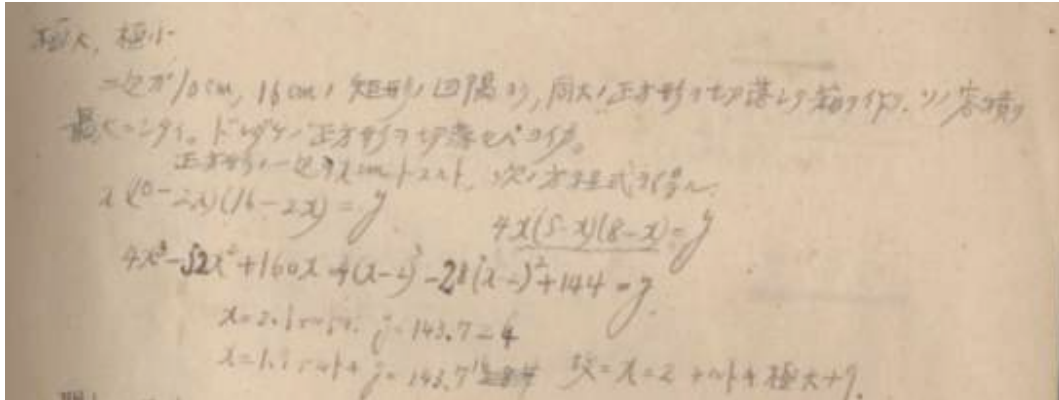 極大, 極小
一辺ガ10cm, 16cmノ矩形ノ四隅ヨリ, 同大ノ正方形ヲ切落シテ箱ヲ作リ, ソノ容積ヲ
最大ニシタイ。ドレダケノ正方形ヲ切落セバヨイカ。
正方形ノ一辺ヲxcmトスルト, 次ノ方程式ヲ得ル.
x(10-2x)(16-2x)=y
4x(5-x)(8-x)=y
4x³-52x²+160x=4(x-2)³-28(x-2)²+144=y.
x=2.1 y=143.724
x=1.9 y=143.7 故ニx=2 ナルトキ極大ナリ.